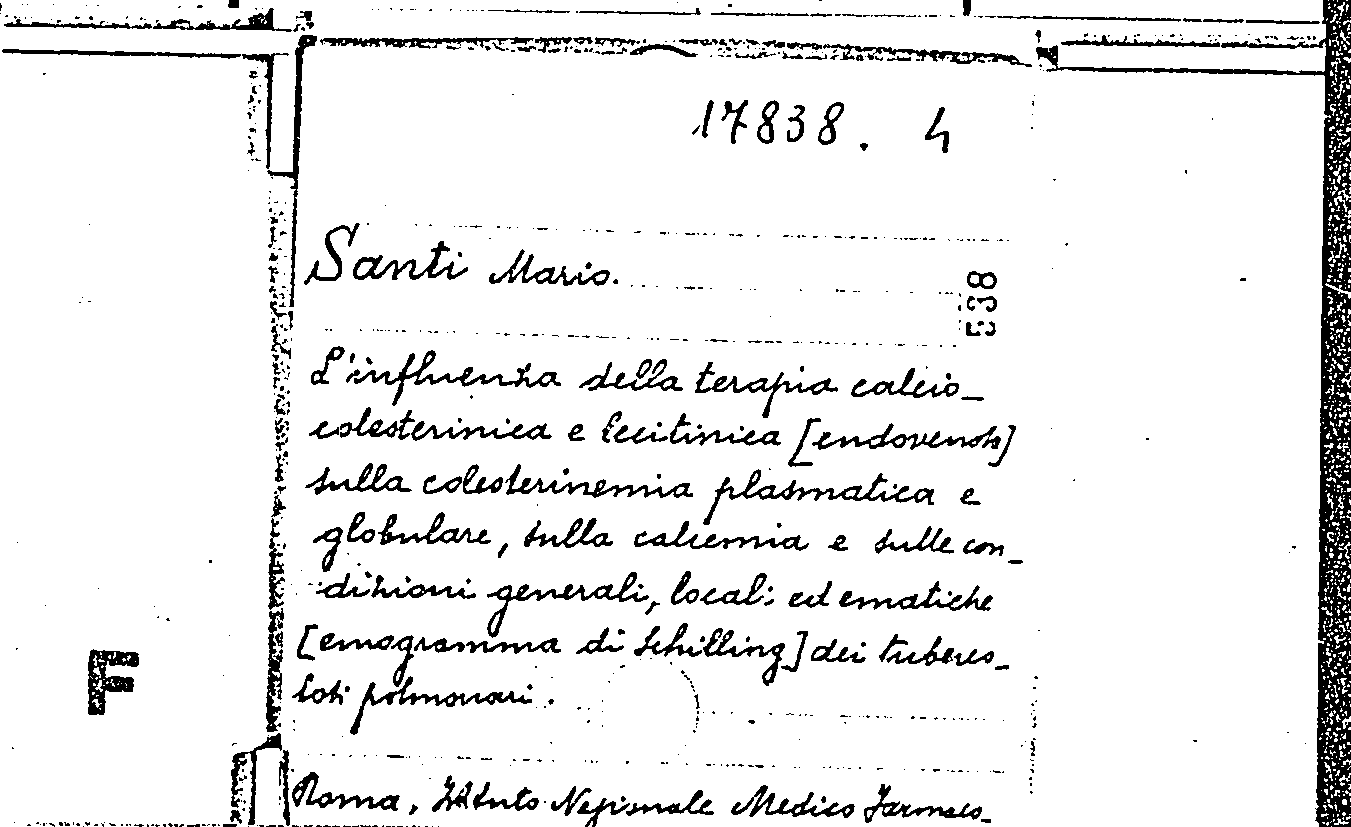 17838. 4
Santi Mario.
538
L'influenza della terapia calcio_
colesterinica e lecitinica [endovenosa]
sulla colesterinemia plasmatica e
globulare, sulla calcemia e sulle con_
dizioni generali, locali ed ematiche
[emogramma di Schilling] dei tuberco_
loti polmonari.
F
Roma, Istituto Nazionale Medico Farmaco_